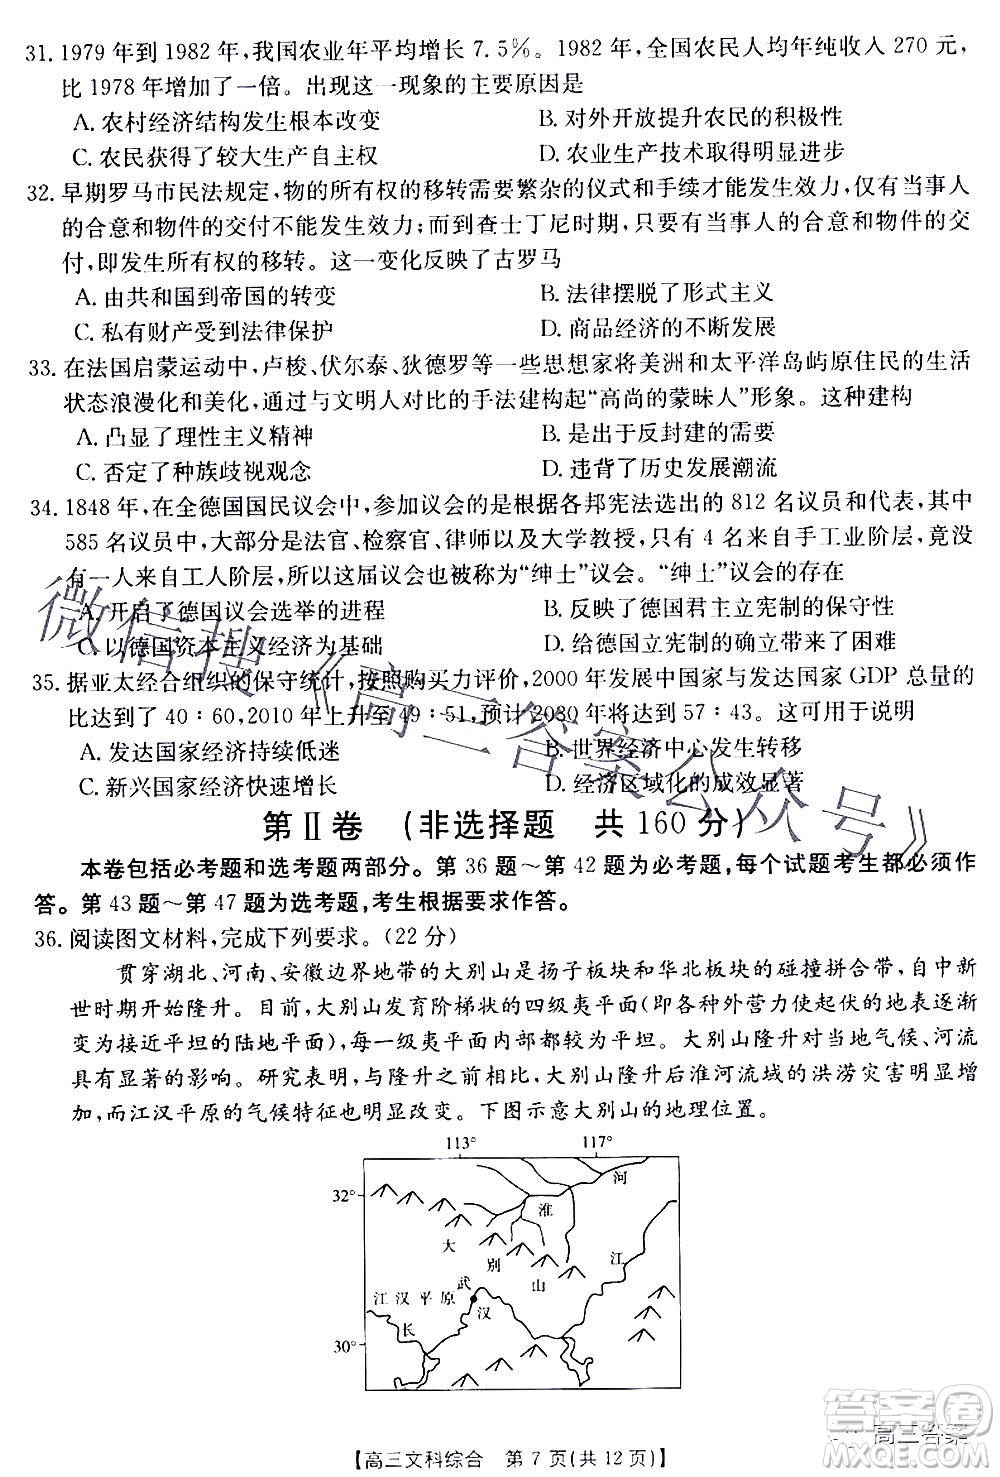 31. 1979 年到 1982 年，我国农业年平均增长 7.5%。1982 年，全国农民人均年纯收入 270 元，
比 1978 年增加了一倍。出现这一现象的主要原因是
A. 农村经济结构发生根本改变 B. 对外开放提升农民的积极性
C. 农民获得了较大生产自主权 D. 农业生产技术取得明显进步
32. 早期罗马市民法规定，物的所有权的移转需要繁杂的仪式和手续才能发生效力，仅有当事人
的合意和物件的交付不能发生效力；而到查士丁尼时期，只要有当事人的合意和物件的交
付，即发生所有权的移转。这一变化反映了古罗马
A. 由共和国到帝国的转变 B. 法律摆脱了形式主义
C. 私有财产受到法律保护 D. 商品经济的不断发展
33. 在法国启蒙运动中，卢梭、伏尔泰、狄德罗等一些思想家将美洲和太平洋岛屿原住民的生活
状态浪漫化和美化，通过与文明人对比的手法建构起“高尚的蒙昧人”形象。这种建构
A. 凸显了理性主义精神 B. 是出于反封建的需要
C. 否定了种族歧视观念 D. 违背了历史发展潮流
34. 1848 年，在全德国国民议会中，参加议会的是根据各邦宪法选出的 812 名议员和代表，其中
585 名议员中，大部分是法官、检察官、律师以及大学教授，只有 4 名来自手工业阶层，竟没
有一人来自工人阶层，所以这届议会也被称为“绅士”议会。“绅士”议会的存在
A. 开启了德国议会选举的进程 B. 反映了德国君主立宪制的保守性
C. 以德国资本主义经济为基础 D. 给德国立宪制的确立带来了困难
35. 据亚太经合组织的保守统计，按照购买力评价，2000 年发展中国家与发达国家 GDP 总量的
比达到了 40：60，2010 年上升至 49：51，预计 2030 年将达到 57：43。这可用于说明
A. 发达国家经济持续低迷 B. 世界经济中心发生转移
C. 新兴国家经济快速增长 D. 经济区域化的成效显著
第Ⅱ卷 （非选择题 共 160 分）
本卷包括必考题和选考题两部分。第 36 题～第 42 题为必考题，每个试题考生都必须作
答。第 43 题～第 47 题为选考题，考生根据要求作答。
36. 阅读图文材料，完成下列要求。（22 分）
贯穿湖北、河南、安徽边界地带的大别山是扬子板块和华北板块的碰撞拼合带，自中新
世时期开始隆升。目前，大别山发育阶梯状的四级夷平面（即各种外营力使起伏的地表逐渐
变为接近平坦的陆地平面），每一级夷平面内部都较为平坦。大别山隆升对该地气候、河流
具有显著的影响。研究认为，与隆升前相比，大别山隆升后淮河流域的洪涝灾害明显增
加，而江汉平原的气候特征也明显改变。下图示意大别山的地理位置。
113° 117°
32°
河
淮
大
别
山
江
江汉平原
武
汉
长
30°
【高三文科综合 第 7 页（共 12 页）】
微信搜《高三答案公众号》
答案圈
高三答案